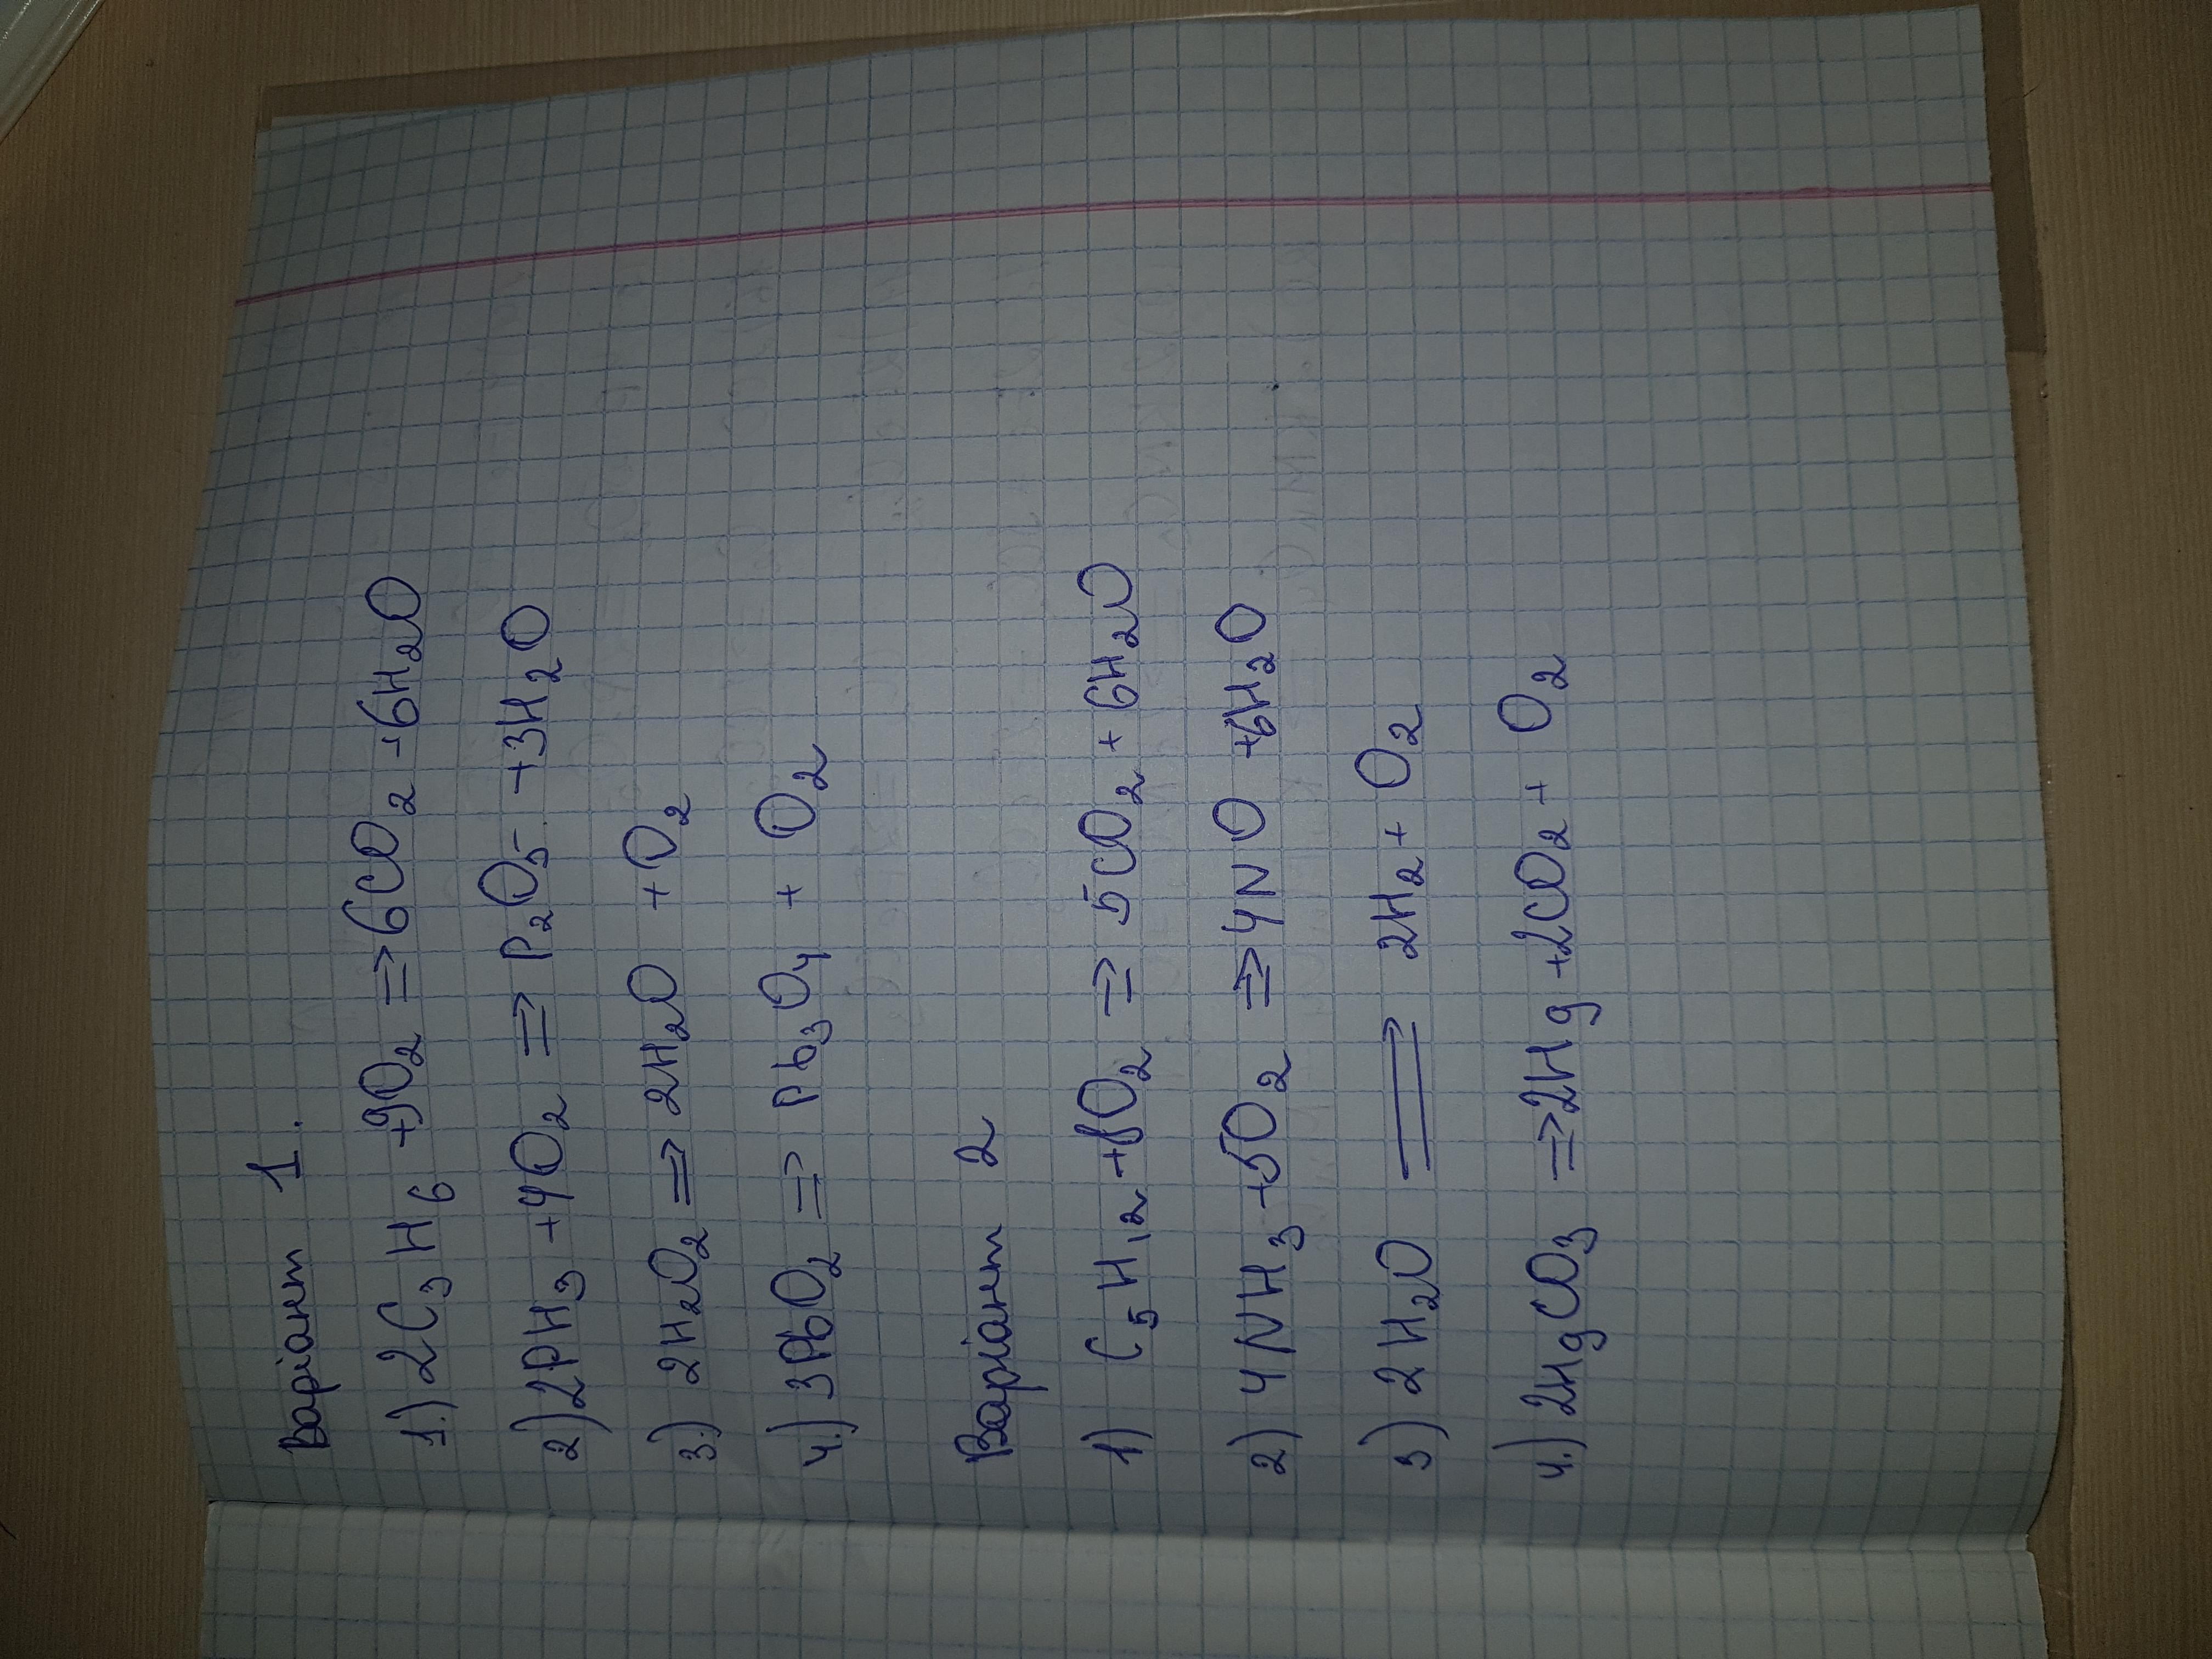 Варіант 1.
1.) 2C₃H₆ +9O₂ ⇒ 6CO₂ +6H₂O
2) 2PH₃ +4O₂ ⇒ P₂O₅ +3H₂O
3.) 2H₂O₂ ⇒ 2H₂O +O₂
4.) 3PbO₂ ⇒ Pb₃O₄ + O₂
Варіант 2
1) C₅H₁₂ +8O₂ ⇒ 5CO₂ + 6H₂O
2) 4NH₃ +5O₂ ⇒ 4NO +6H₂O
3) 2H₂O ⇒ 2H₂ + O₂
4.) 2HgCO₃ ⇒ 2Hg +2CO₂ + O₂